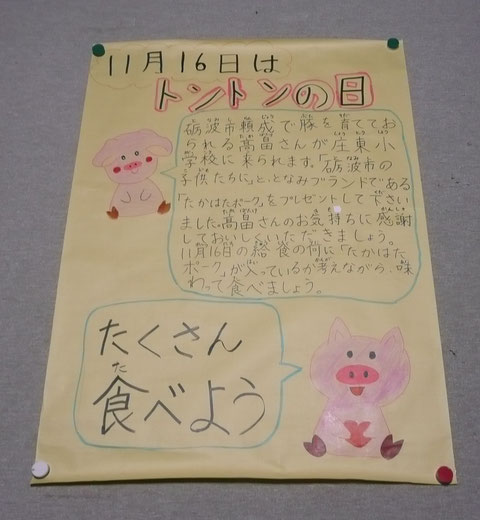 11月16日は
トントンの日
砺波市頼成で豚を育ててお
られる高畠さんが庄東小
学校に来られます。「砺波市の
子供たちに」と、となみブランドである
「たかはたポーク」をプレゼントして下さい
ました。高畠さんのお気持ちに感謝
しておいしくいただきましょう。
11月16日の給食の何に「たかはた
ポーク」が入っているか考えながら、味
わって食べましょう。
たくさん
食べよう